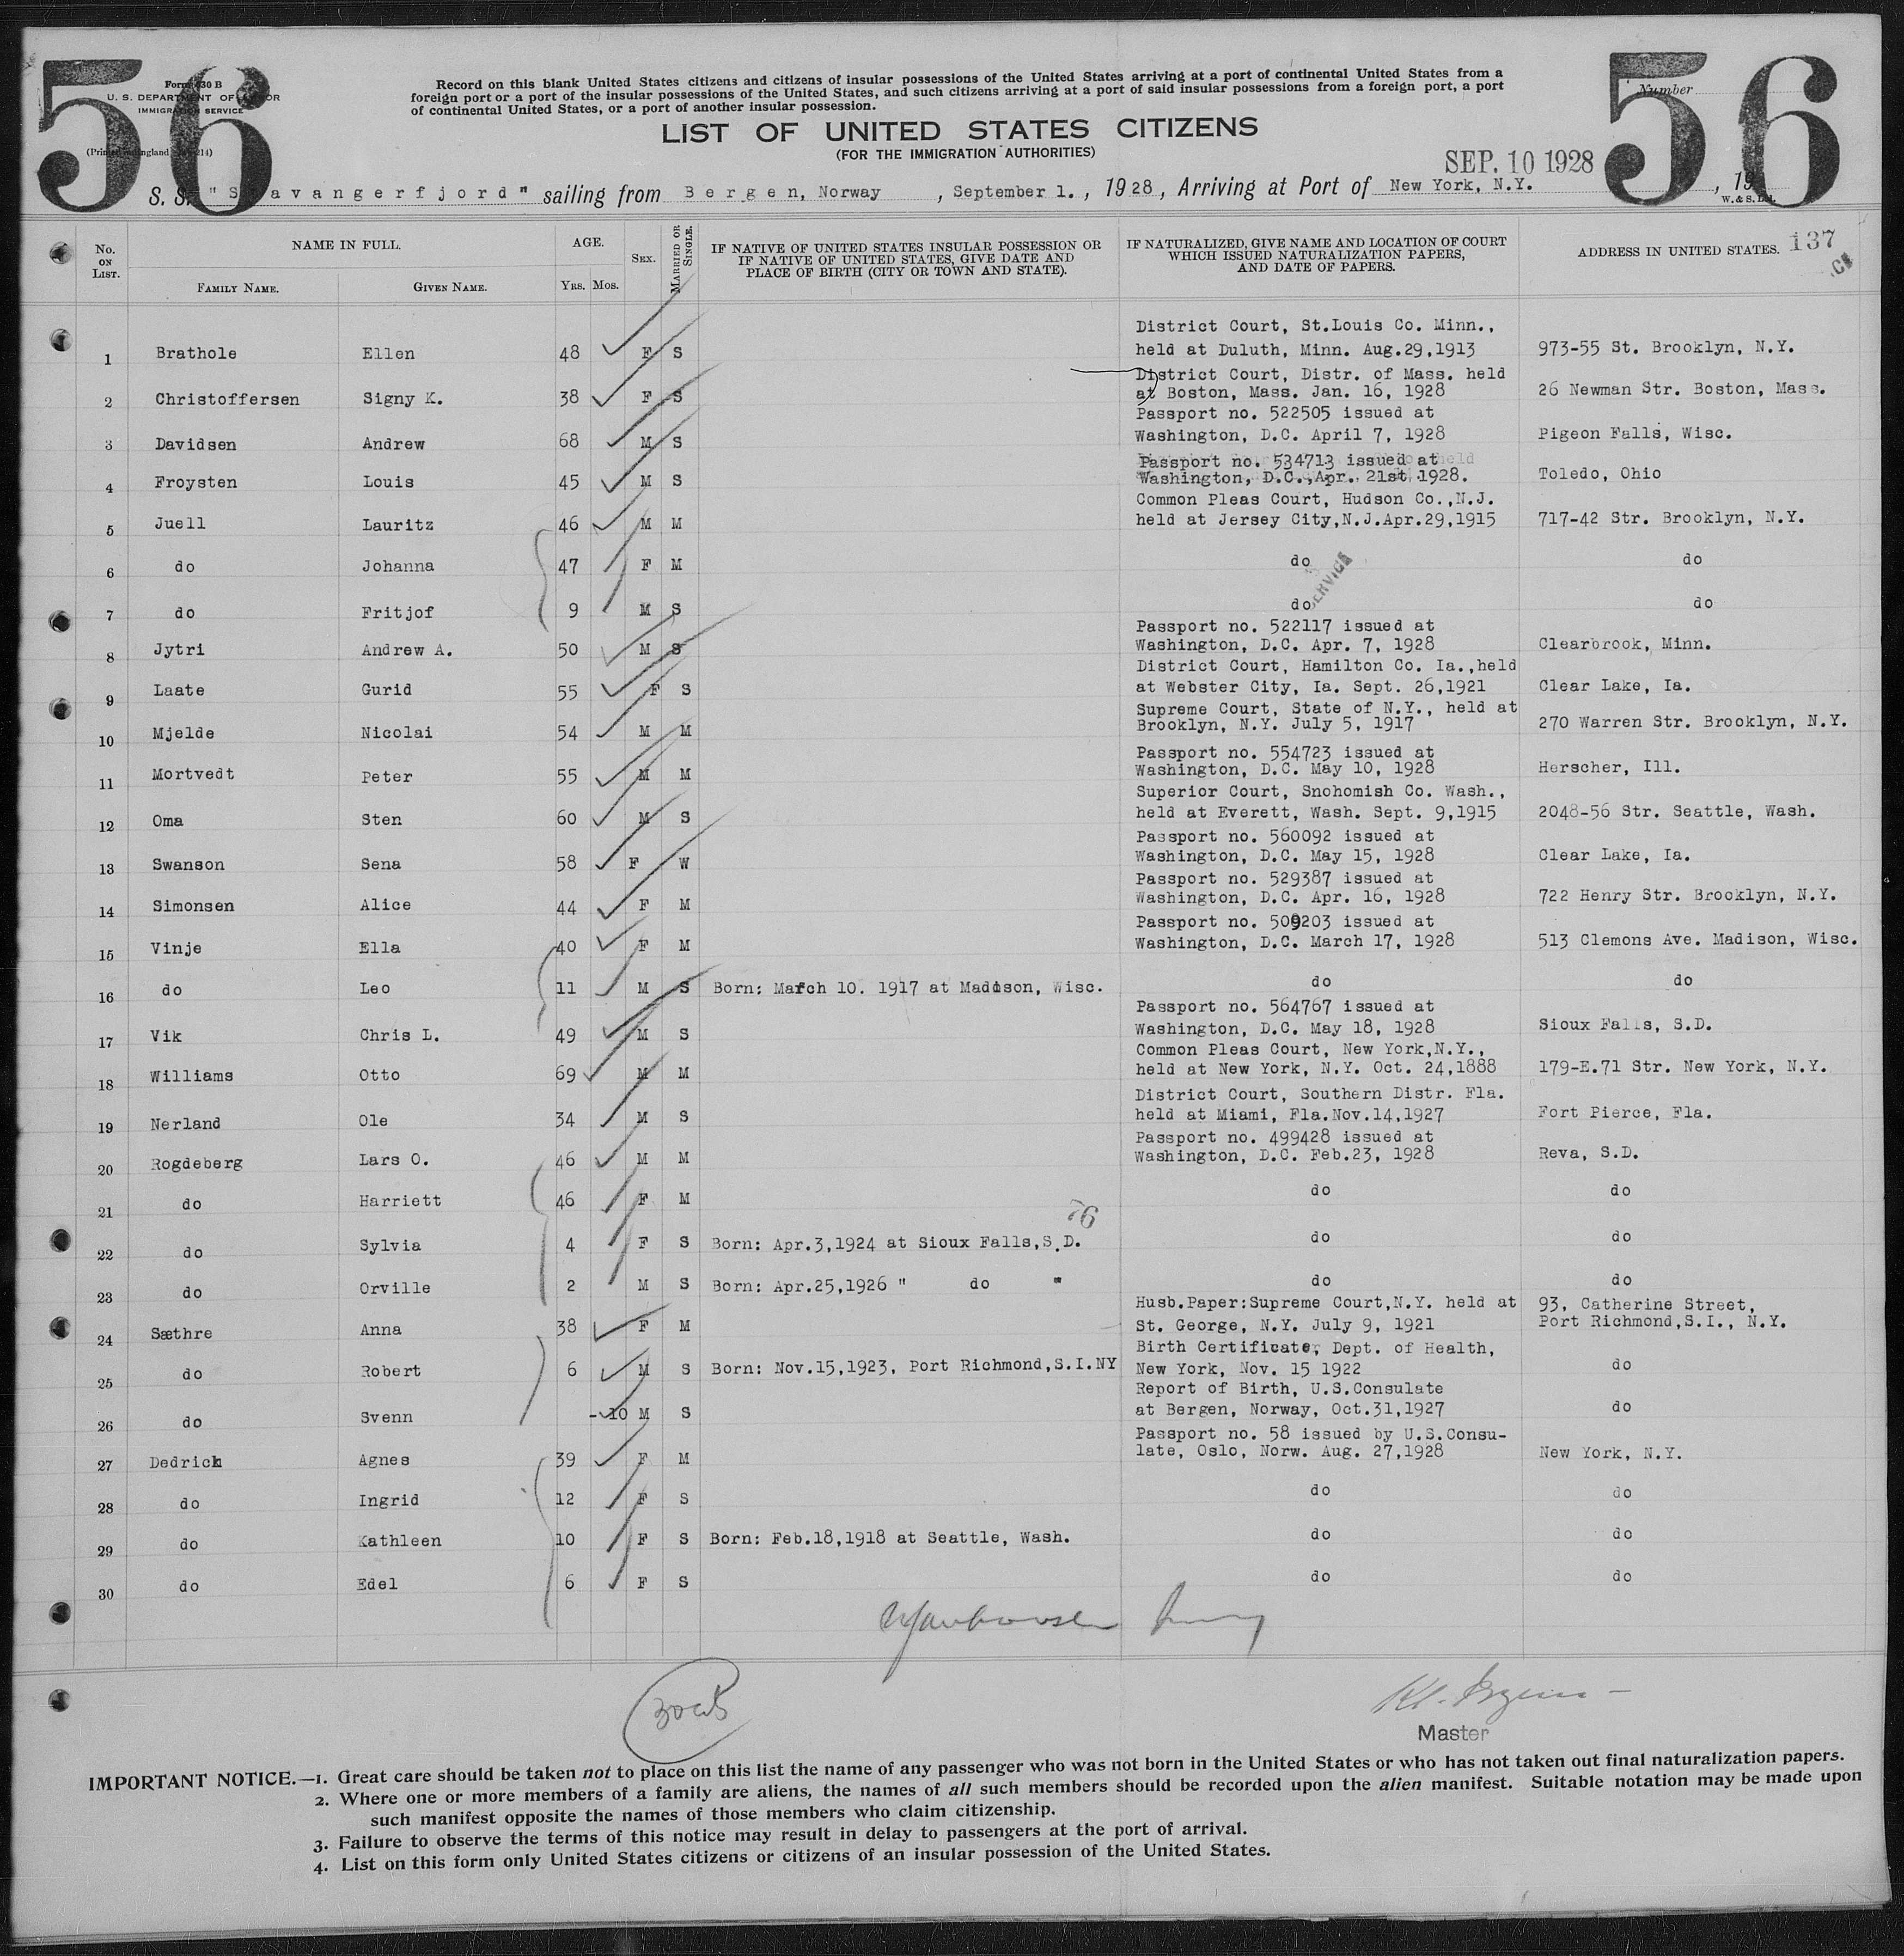 56
56
Form 630 B
U. S. DEPARTMENT OF LABOR
IMMIGRATION SERVICE
Number
Record on this blank United States citizens and citizens of insular possessions of the United States arriving at a port of continental United States from a
foreign port or a port of the insular possessions of the United States, and such citizens arriving at a port of said insular possessions from a foreign port, a port
of continental United States, or a port of another insular possession.
LIST OF UNITED STATES CITIZENS
(FOR THE IMMIGRATION AUTHORITIES)
SEP. 10 1928
S. S. "Stavangerfjord" sailing from Bergen, Norway, September 1., 1928, Arriving at Port of New York, N.Y., 19
W. & S. Ltd.
No. ON LIST. NAME IN FULL. AGE. SEX. MARRIED OR SINGLE. IF NATIVE OF UNITED STATES INSULAR POSSESSION OR IF NATIVE OF UNITED STATES, GIVE DATE AND PLACE OF BIRTH (CITY OR TOWN AND STATE). IF NATURALIZED, GIVE NAME AND LOCATION OF COURT WHICH ISSUED NATURALIZATION PAPERS, AND DATE OF PAPERS. ADDRESS IN UNITED STATES. 137
FAMILY NAME. GIVEN NAME. YRS. MOS.
District Court, St.Louis Co. Minn.,
1 Brathole Ellen 48 F S held at Duluth, Minn. Aug.29,1913 973-55 St. Brooklyn, N.Y.
District Court, Distr. of Mass. held
2 Christoffersen Signy K. 38 F S at Boston, Mass. Jan. 16, 1928 26 Newman Str. Boston, Mass.
Passport no. 522505 issued at
3 Davidsen Andrew 68 M S Washington, D.C. April 7, 1928 Pigeon Falls, Wisc.
Passport no. 534713 issued at
4 Froysten Louis 45 M S Washington, D.C.,Apr. 21st 1928. Toledo, Ohio
Common Pleas Court, Hudson Co.,N.J.
5 Juell Lauritz 46 M M held at Jersey City,N.J.Apr.29,1915 717-42 Str. Brooklyn, N.Y.
6 do Johanna 47 F M do do
SERVICE
7 do Fritjof 9 M S do do
Passport no. 522117 issued at
8 Jytri Andrew A. 50 M S Washington, D.C. Apr. 7, 1928 Clearbrook, Minn.
District Court, Hamilton Co. Ia.,held
9 Laate Gurid 55 F S at Webster City, Ia. Sept. 26,1921 Clear Lake, Ia.
Supreme Court, State of N.Y., held at
10 Mjelde Nicolai 54 M M Brooklyn, N.Y. July 5, 1917 270 Warren Str. Brooklyn, N.Y.
Passport no. 554723 issued at
11 Mortvedt Peter 55 M M Washington, D.C. May 10, 1928 Herscher, Ill.
Superior Court, Snohomish Co. Wash.,
12 Oma Sten 60 M S held at Everett, Wash. Sept. 9,1915 2048-56 Str. Seattle, Wash.
Passport no. 560092 issued at
13 Swanson Sena 58 F W Washington, D.C. May 15, 1928 Clear Lake, Ia.
Passport no. 529387 issued at
14 Simonsen Alice 44 F M Washington, D.C. Apr. 16, 1928 722 Henry Str. Brooklyn, N.Y.
Passport no. 509203 issued at
15 Vinje Ella 40 F M Washington, D.C. March 17, 1928 513 Clemons Ave. Madison, Wisc.
16 do Leo 11 M S Born: March 10. 1917 at Madison, Wisc. do do
Passport no. 564767 issued at
17 Vik Chris L. 49 M S Washington, D.C. May 18, 1928 Sioux Falls, S.D.
Common Pleas Court, New York,N.Y.,
18 Williams Otto 69 M M held at New York, N.Y. Oct. 24,1888 179-E.71 Str. New York, N.Y.
District Court, Southern Distr. Fla.
19 Nerland Ole 34 M S held at Miami, Fla.Nov.14,1927 Fort Pierce, Fla.
Passport no. 499428 issued at
20 Rogdeberg Lars O. 46 M M Washington, D.C. Feb.23, 1928 Reva, S.D.
21 do Harriett 46 F M do do
76
22 do Sylvia 4 F S Born: Apr.3,1924 at Sioux Falls,S.D. do do
23 do Orville 2 M S Born: Apr.25,1926 " do " do do
Husb.Paper:Supreme Court,N.Y. held at 93, Catherine Street,
24 Sæthre Anna 38 F M St. George, N.Y. July 9, 1921 Port Richmond,S.I., N.Y.
Birth Certificate, Dept. of Health,
25 do Robert 6 M S Born: Nov.15,1923, Port Richmond,S.I.NY New York, Nov. 15 1922 do
Report of Birth, U.S.Consulate
26 do Svenn -10 M S at Bergen, Norway, Oct.31,1927 do
Passport no. 58 issued by U.S.Consu-
27 Dedrich Agnes 39 F M late, Oslo, Norw. Aug. 27,1928 New York, N.Y.
28 do Ingrid 12 F S do do
29 do Kathleen 10 F S Born: Feb.18,1918 at Seattle, Wash. do do
30 do Edel 6 F S do do
Master
IMPORTANT NOTICE.—1. Great care should be taken not to place on this list the name of any passenger who was not born in the United States or who has not taken out final naturalization papers.
2. Where one or more members of a family are aliens, the names of all such members should be recorded upon the alien manifest. Suitable notation may be made upon
such manifest opposite the names of those members who claim citizenship.
3. Failure to observe the terms of this notice may result in delay to passengers at the port of arrival.
4. List on this form only United States citizens or citizens of an insular possession of the United States.